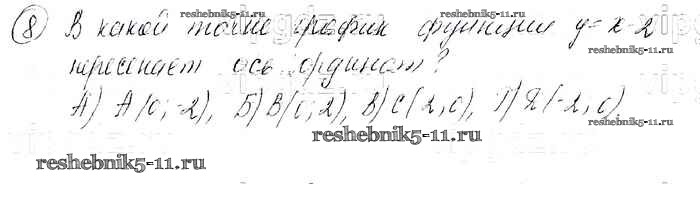 8) В какой точке график функции y = x - 2
пересекает ось ординат?
А) A(0; -2), Б) B(0; 2), В) C(2; 0), Г) Д(-2; 0)
reshebnik5-11.ru
reshebnik5-11.ru
reshebnik5-11.ru
reshebnik5-11.ru
reshebnik5-11.ru